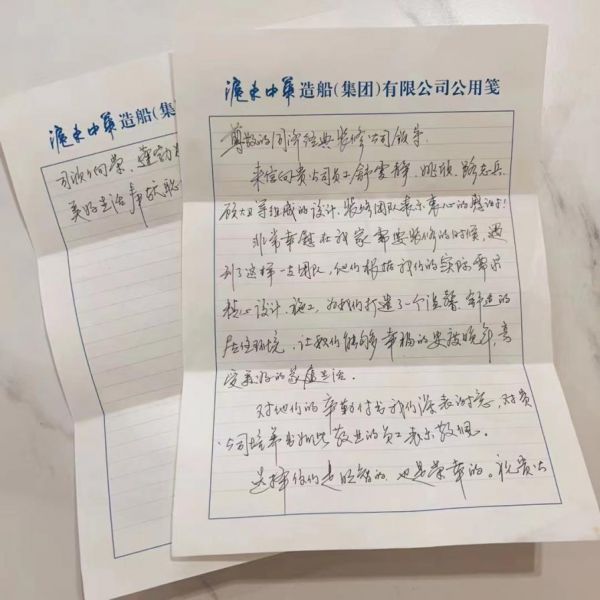 沪东中华造船(集团)有限公司公用笺
尊敬的同济经典装修公司领导:
来信向贵公司员工舒雲静、姚欣、路志兵、
等组成的设计、装修团队表示衷心的感谢!
非常幸运在我家需要装修的时候,遇
到了这样一支团队,他们根据我们的实际需求
精心设计、施工,为我们打造了一个温馨、舒适的
居住环境,让我们能够幸福的安度晚年,享
受美好的家庭生活。
对他们的辛勤付出我们深表谢意,对贵
公司培养出如此敬业的员工表示敬佩。
选择你们是明智的,也是荣幸的。祝贵公
沪东中华造船(集
司欣欣向荣、
美好生活奉献